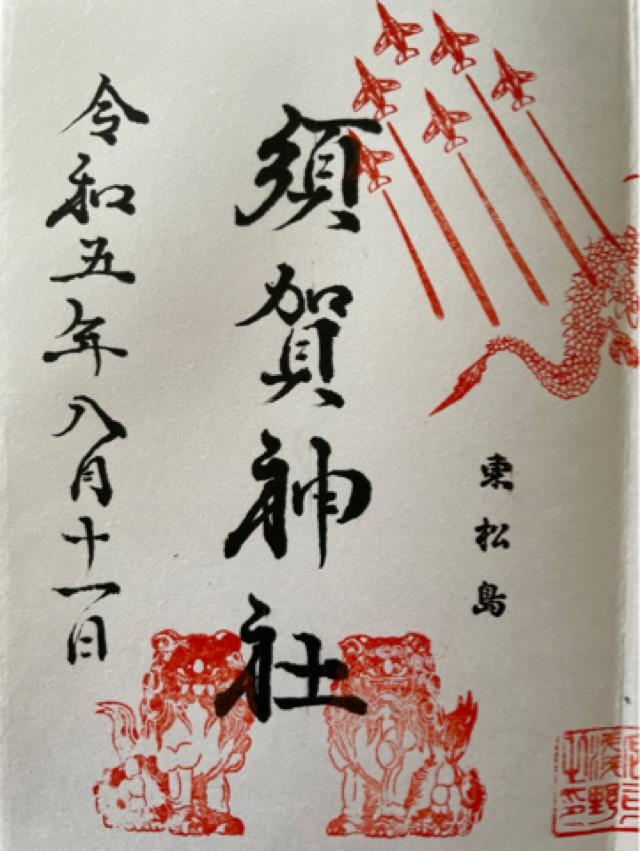 東松島
須賀神社
令和五年八月十一日